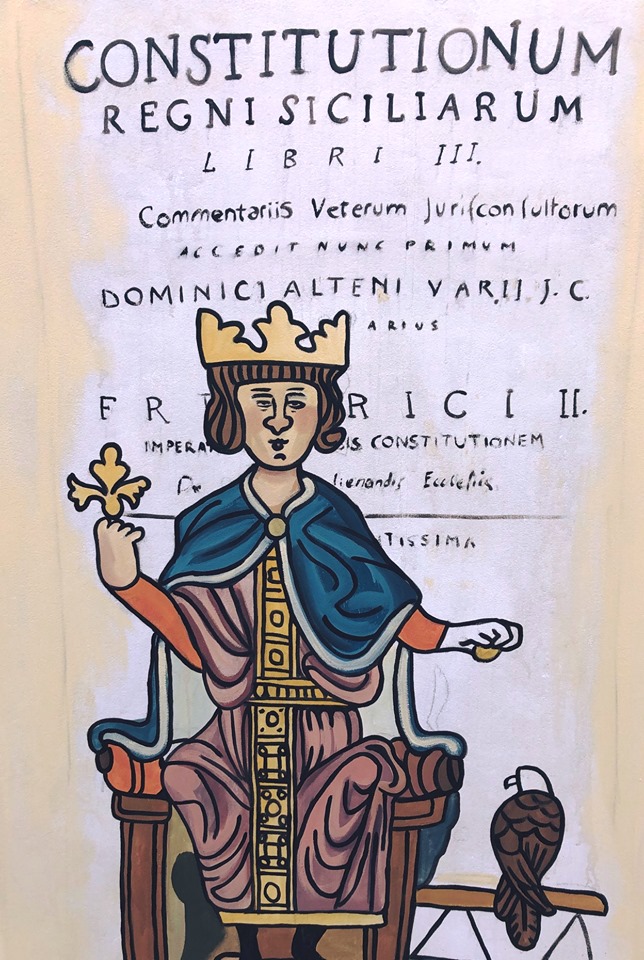 CONSTITUTIONUM
REGNI SICILIARUM
LIBRI III.
Commentariis Veterum Jurisconsultorum
ACCEDIT NUNC PRIMUM
DOMINICI ALTENI VARII J. C.
ARIUS
FR RICI II.
IMPERAT IS CONSTITUTIONEM
lienandis Ecclesiis
TISSIMA